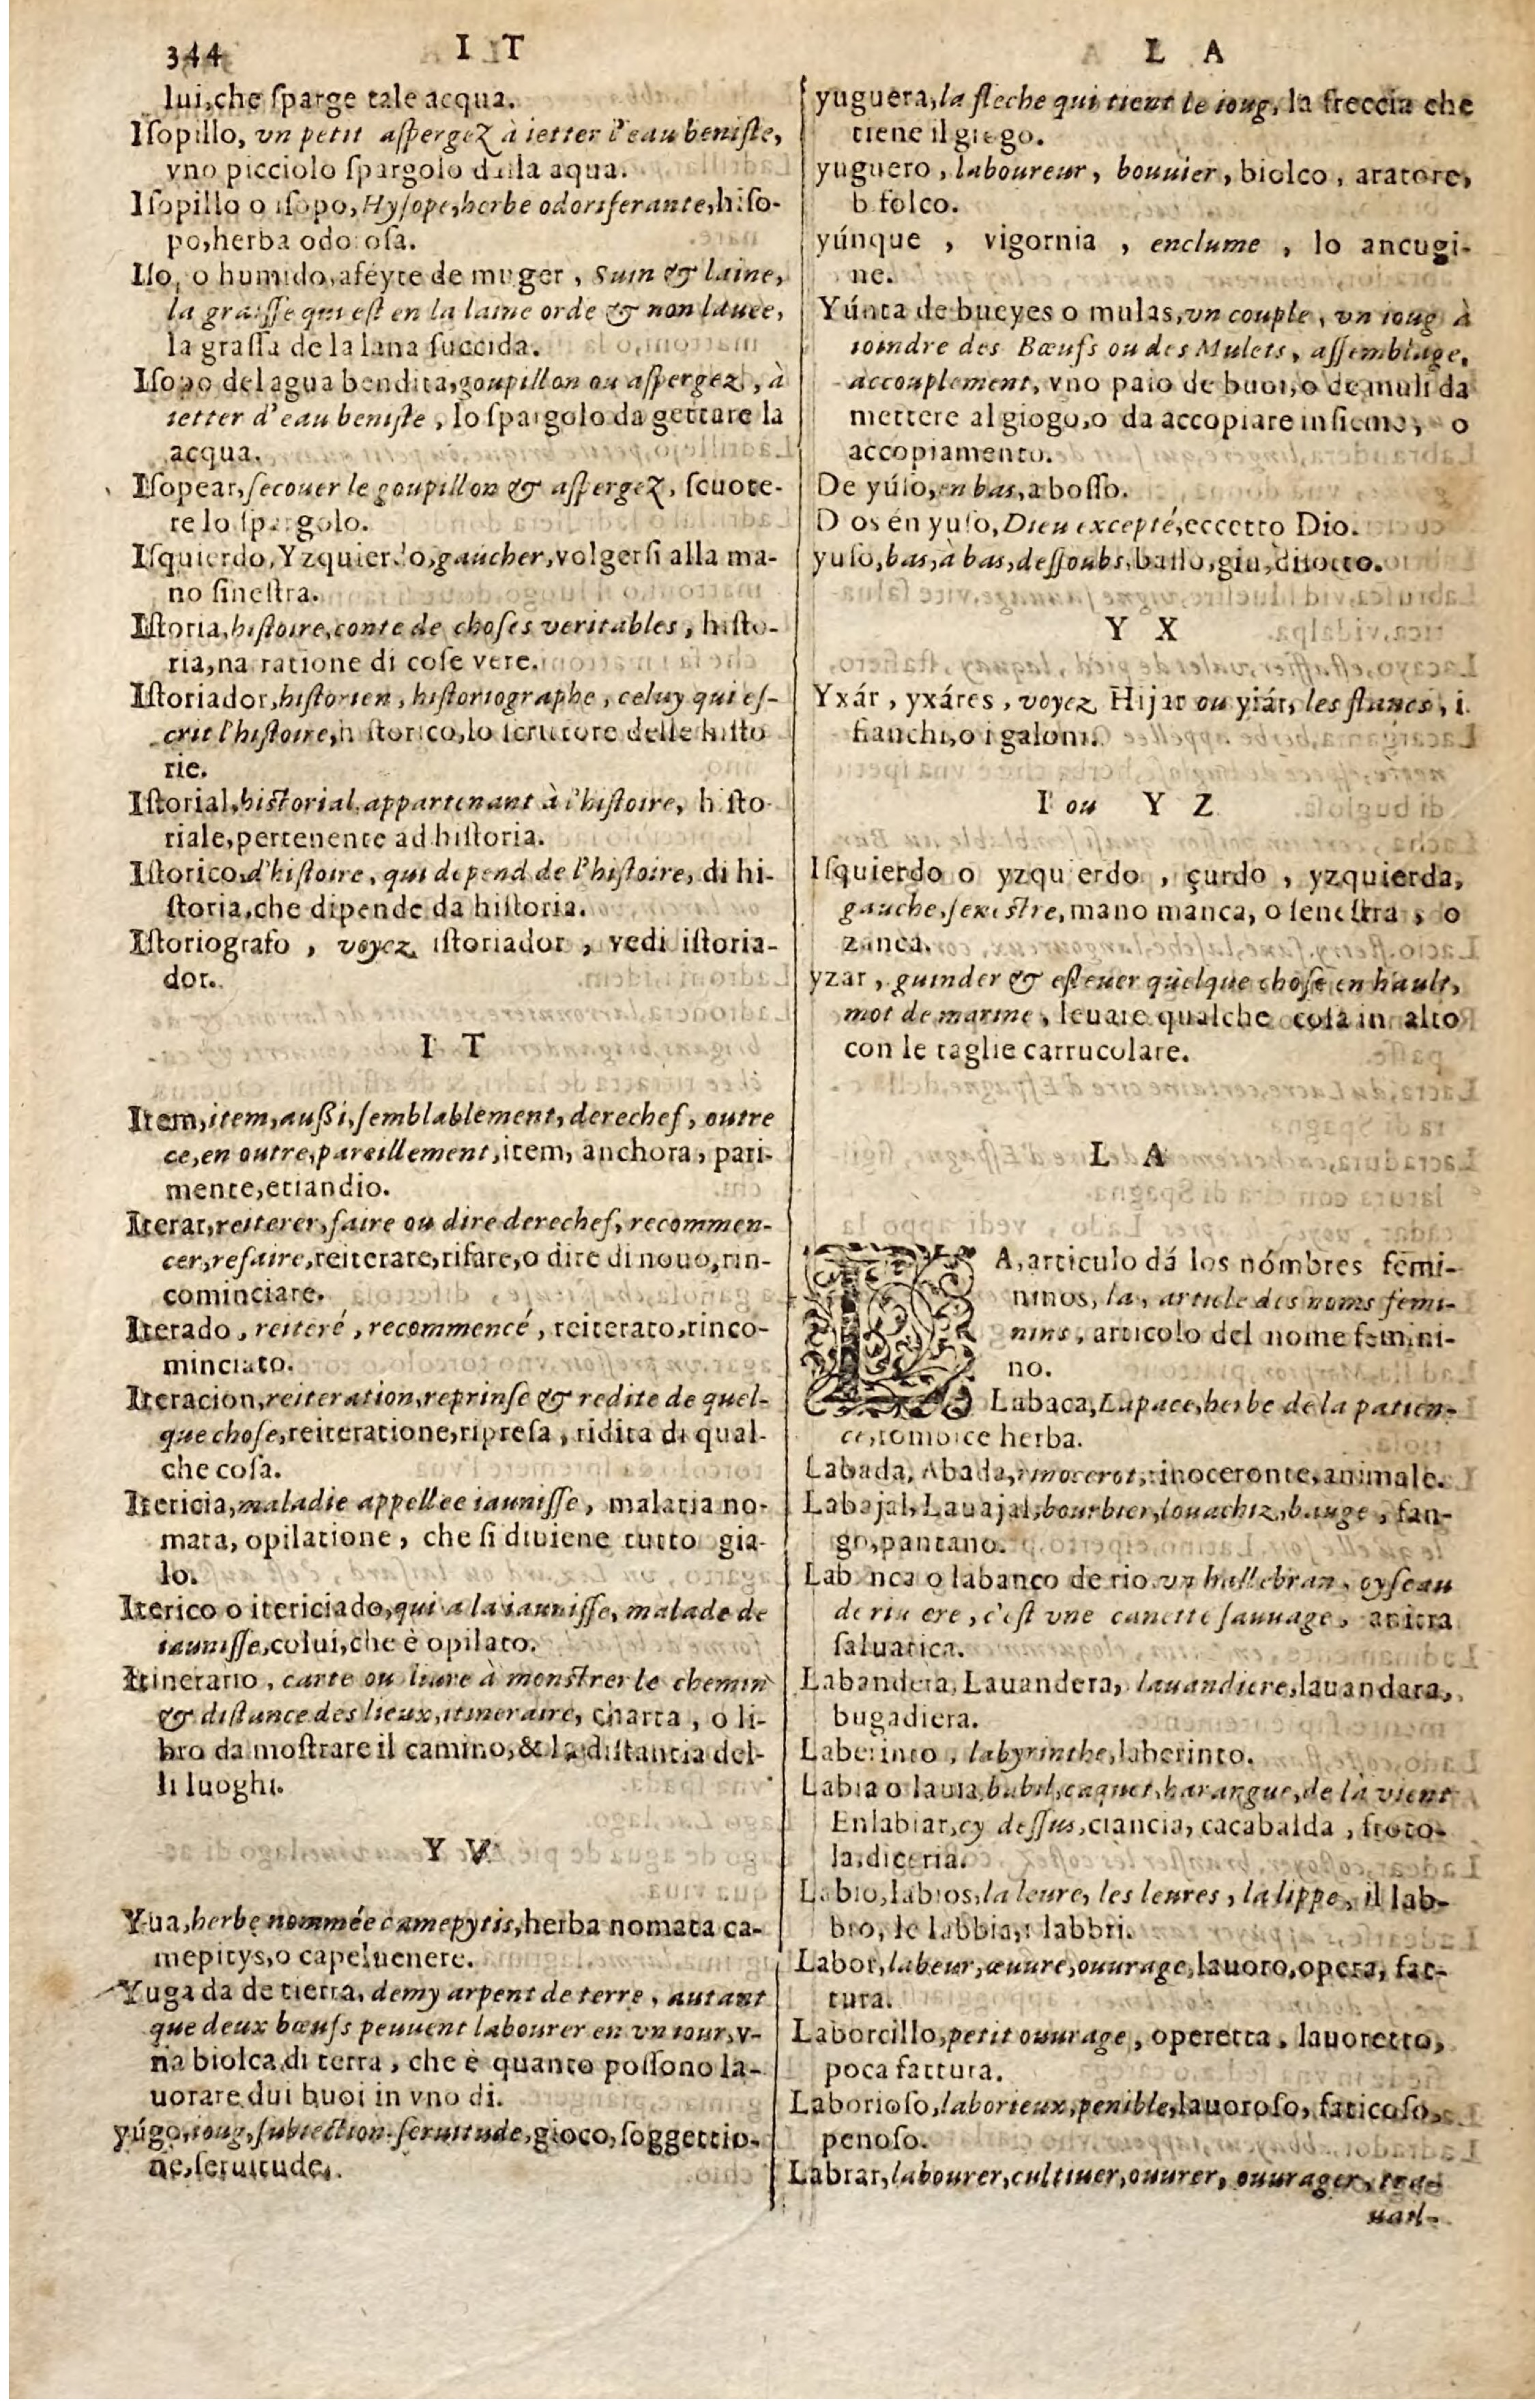 344
I T
L A
lui,che ſparge tale acqua.
Iſopillo, vn petit aſpergeζ à ietter l'eau beniſte,
vno picciolo ſpargolo della aqua.
Iſopillo o iſopo, Hyſope,herbe odoriferante,hiſo-
po,herba odoroſa.
Iſo, o humido,aféyte de muger, Suin & laine,
la graiſſe qui eſt en la laine orde & non lauée,
la graſſa de la lana ſuccida.
Iſopo del agua bendita,goupillon ou aſpergez, à
ietter d'eau beniſte, lo ſpargolo da gettare la
acqua.
Iſopear,ſecouer le goupillon & aſpergeζ, ſcuote-
re lo ſpargolo.
Iſquierdo,Yzquierdo,gaucher,volgerſi alla ma-
no ſineſtra.
Iſtoria,hiſtoire,conte de choſes veritables, hiſto-
ria,narratione di coſe vere.
Iſtoriador,hiſtorien, hiſtoriographe, celuy qui eſ-
crit l'hiſtoire,hiſtorico,lo ſcrittore delle hiſto
rie.
Iſtorial,historial,appartenant à l'hiſtoire, hiſto-
riale,pertenente ad hiſtoria.
Iſtorico,d'hiſtoire, qui depend de l'hiſtoire, di hi-
ſtoria,che dipende da hiſtoria.
Iſtoriografo, voyez iſtoriador, vedi iſtoria-
dor.
I T
Item,item,außi,ſemblablement,derechef, outre
ce,en outre,pareillement,item, anchora, pari-
mente,etiandio.
Iterar,reiterer,faire ou dire derechef, recommen-
cer,refaire,reiterare,rifare,o dire di nouo,rin-
cominciare.
Iterado, reiteré, recommencé, reiterato,rinco-
minciato.
Iteracion,reiteration,reprinſe & redite de quel-
que choſe,reiteratione,ripreſa, ridita di qual-
che coſa.
Itericia,maladie appellee iauniſſe, malatia no-
mata, opilatione, che ſi diuiene tutto gia-
lo.
Iterico o itericiado,qui a la iauniſſe, malade de
iauniſſe,colui,che è opilato.
Itinerario, carte ou liure à monstrer le chemin
& diſtance des lieux,itineraire, charta, o li-
bro da moſtrare il camino,& la diſtantia del-
li luoghi.
Y V
Yua,herbe nommée camepytis,herba nomata ca-
mepitys,o capeluenere.
Yugada de tierra, demy arpent de terre, autant
que deux bœufs peuuent labourer en vn iour,v-
na biolca di terra, che è quanto poſſono la-
uorare dui buoi in vno di.
yúgo,ioug,ſubiection.ſeruitude,gioco,ſoggettio-
ne,ſeruitude.
yuguera,la fleche qui tient le ioug, la freccia che
tiene il giogo.
yuguero, laboureur, bouuier, biolco, aratore,
bifolco.
yúnque, vigornia, enclume, lo ancugi-
ne.
Yúnta de bueyes o mulas,vn couple, vn ioug à
ioindre des Bœufs ou des Mulets, aſſemblage,
accouplement, vno paio de buoi,o de muli da
mettere al giogo,o da accopiare inſieme, o
accopiamento.
De yúſo,en bas,a boſſo.
Dios en yuſo, Dieu excepté,eccetto Dio.
yuſo,bas,à bas,deſſoubs,baſſo,giu,diſotto.
Y X
Yxár, yxáres, voyez Hijar ou yiár, les flancs, i
fianchi,o i galoni.
I ou Y Z
Iſquierdo o yzquierdo, çurdo, yzquierda,
gauche,ſenestre,mano manca, o ſeneſtra, o
zanca.
yzar, guinder & esleuer quelque choſe en hault,
mot de marine, leuare qualche coſa in alto
con le taglie carrucolare.
L A
LA,articulo dá los nómbres femi-
ninos, la, article des noms femi-
nins, articolo del nome femini-
no.
Labaca,Lapace,herbe de la patien-
ce,rombice herba.
Labada, Abada,rinocerot,rinoceronte,animale.
Labajal,Lauajal,bourbier,louachiz,bauge, fan-
go,pantano.
Labanca o labanco de rio.vn hallebran, oyſeau
de riuiere, c'eſt vne canette ſauuage, anitra
ſaluatica.
Labandera, Lauandera, lauandiere,lauandara,
bugadiera.
Laberinto, labyrinthe,laberinto.
Labia o lauia,babil,caquet,harangue,de là vient
Enlabiar,cy deſſus,ciancia, cacabalda, froto-
la,diceria.
Labio,labios,la leure, les leures, la lippe, il lab-
bro, le labbia,i labbri.
Labor,labeur,œuure,ouurage,lauoro,opera, fat-
tura.
Laborcillo,petit ouurage, operetta, lauoretto,
poca fattura.
Laborioſo,laborieux,penible,lauoroſo, faticoſo,
penoſo.
Labrar,labourer,cultiuer,ouurer, ouurager, tra-
uail-